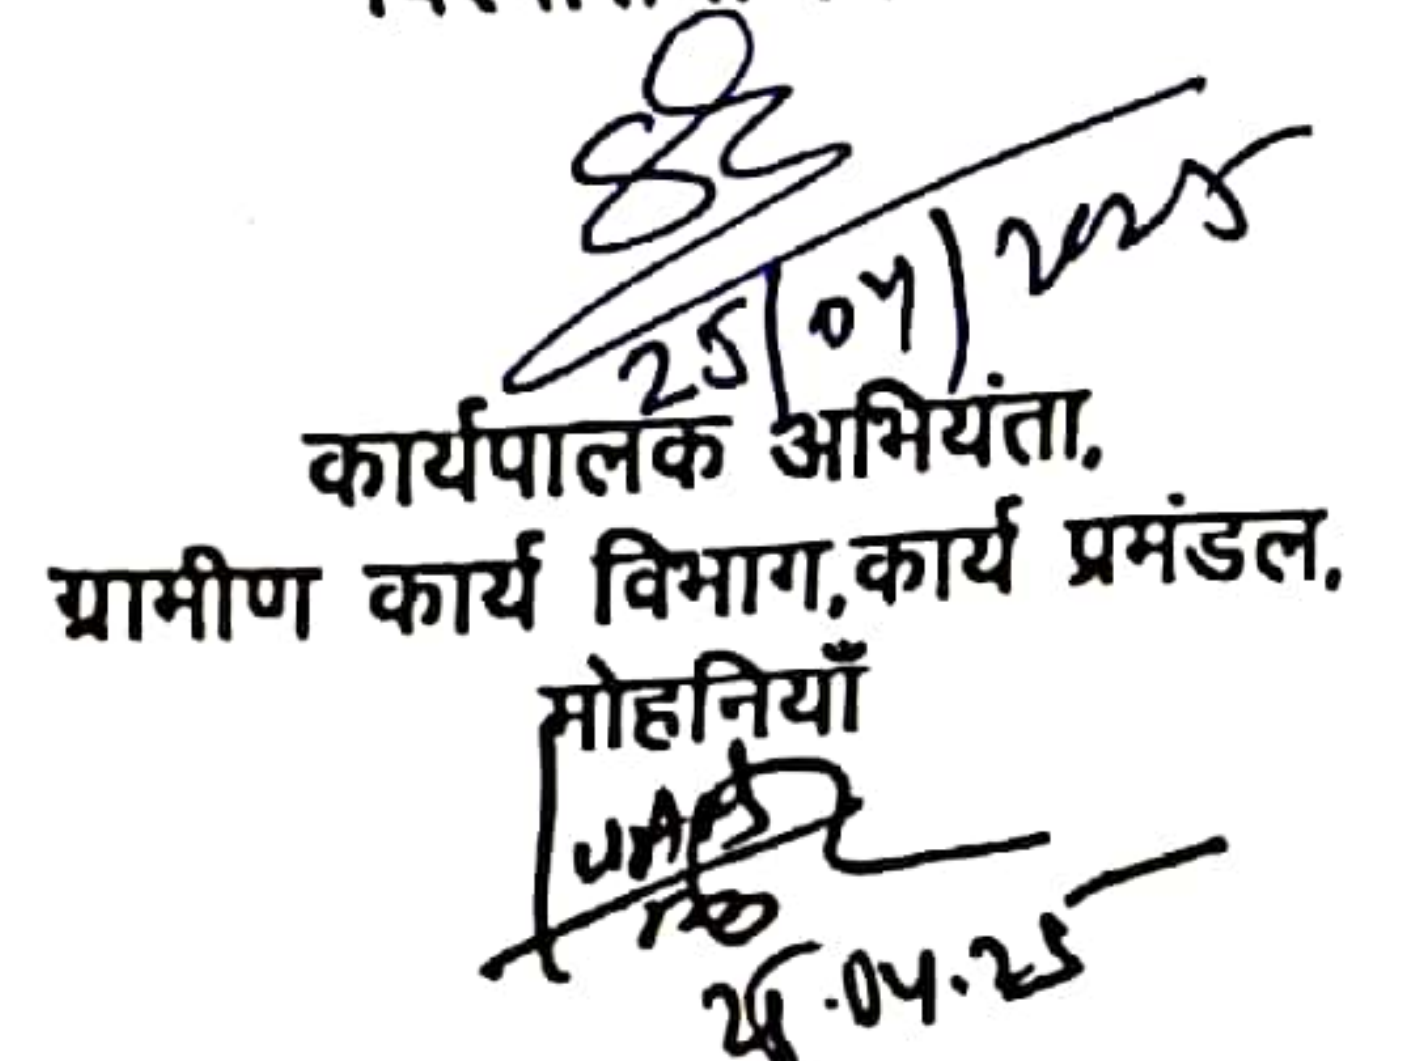 25/04/2025
कार्यपालक अभियंता,
ग्रामीण कार्य विभाग,कार्य प्रमंडल,
मोहनियाँ
.04.25